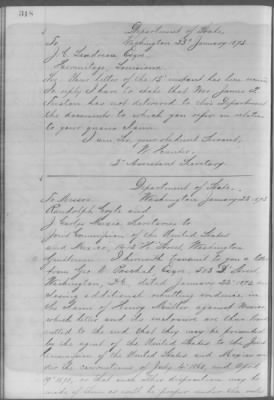 318
Department of State,
To Washington 23d January 1873.
J. C. Landreau Esqre.
Hermitage, Louisiana
Sir. Your letter of the 15" instant has been
In reply I have to state that Mr. James F.
has not delivered to this Department
the documents to which you refer in relation
to your guano claim.
I am Sir, your obedient Servant,
W. Hunter
2d Assistant Secretary
Department of State.
To Messrs Washington January 23, 1873
Randolph Coyle and
J. Carlos Mexia, Secretaries to
Joint Commission of the United States
and Mexico, H. Street, Washington
Gentlemen. I herewith transmit to you a letter
from Geo. W. Paschal Esqre., D Street,
Washington, D.C. dated January 22, 1873
additional rebutting evidence in
the claim of Henry against Mexico
which letter and its enclosure are
to the end that they may be presented
by the agent of the United States to the Joint
Commission of the United States and Mexico
the conventions of July 4" 1868, and April
19" 1871, or that such other disposition may be
made of them as could be proper under the